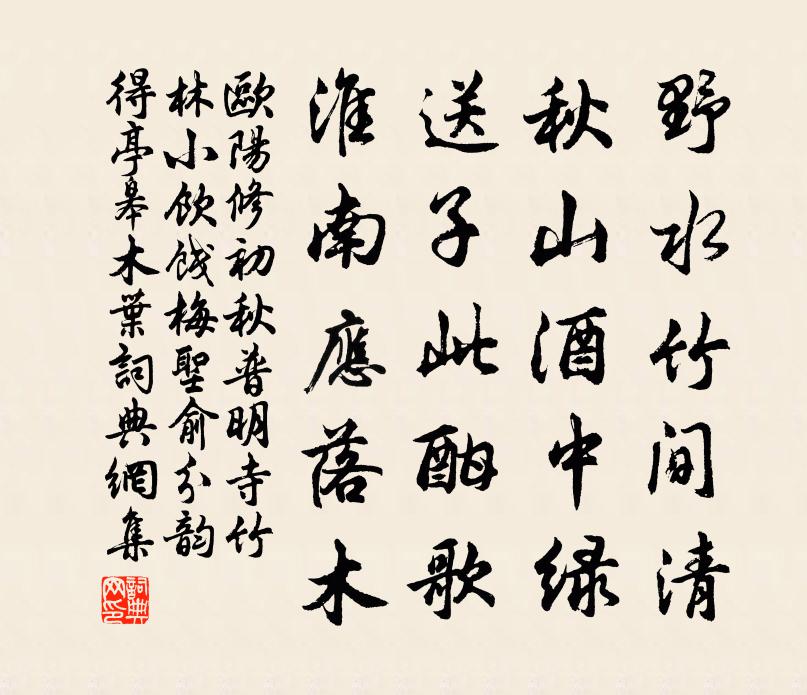 野水竹间清
秋山酒中绿
送子此酣歌
淮南應落木
歐陽修初秋普明寺竹
林小飲餞梅聖俞分韵
得亭皋木葉詞典網集
詞典網印